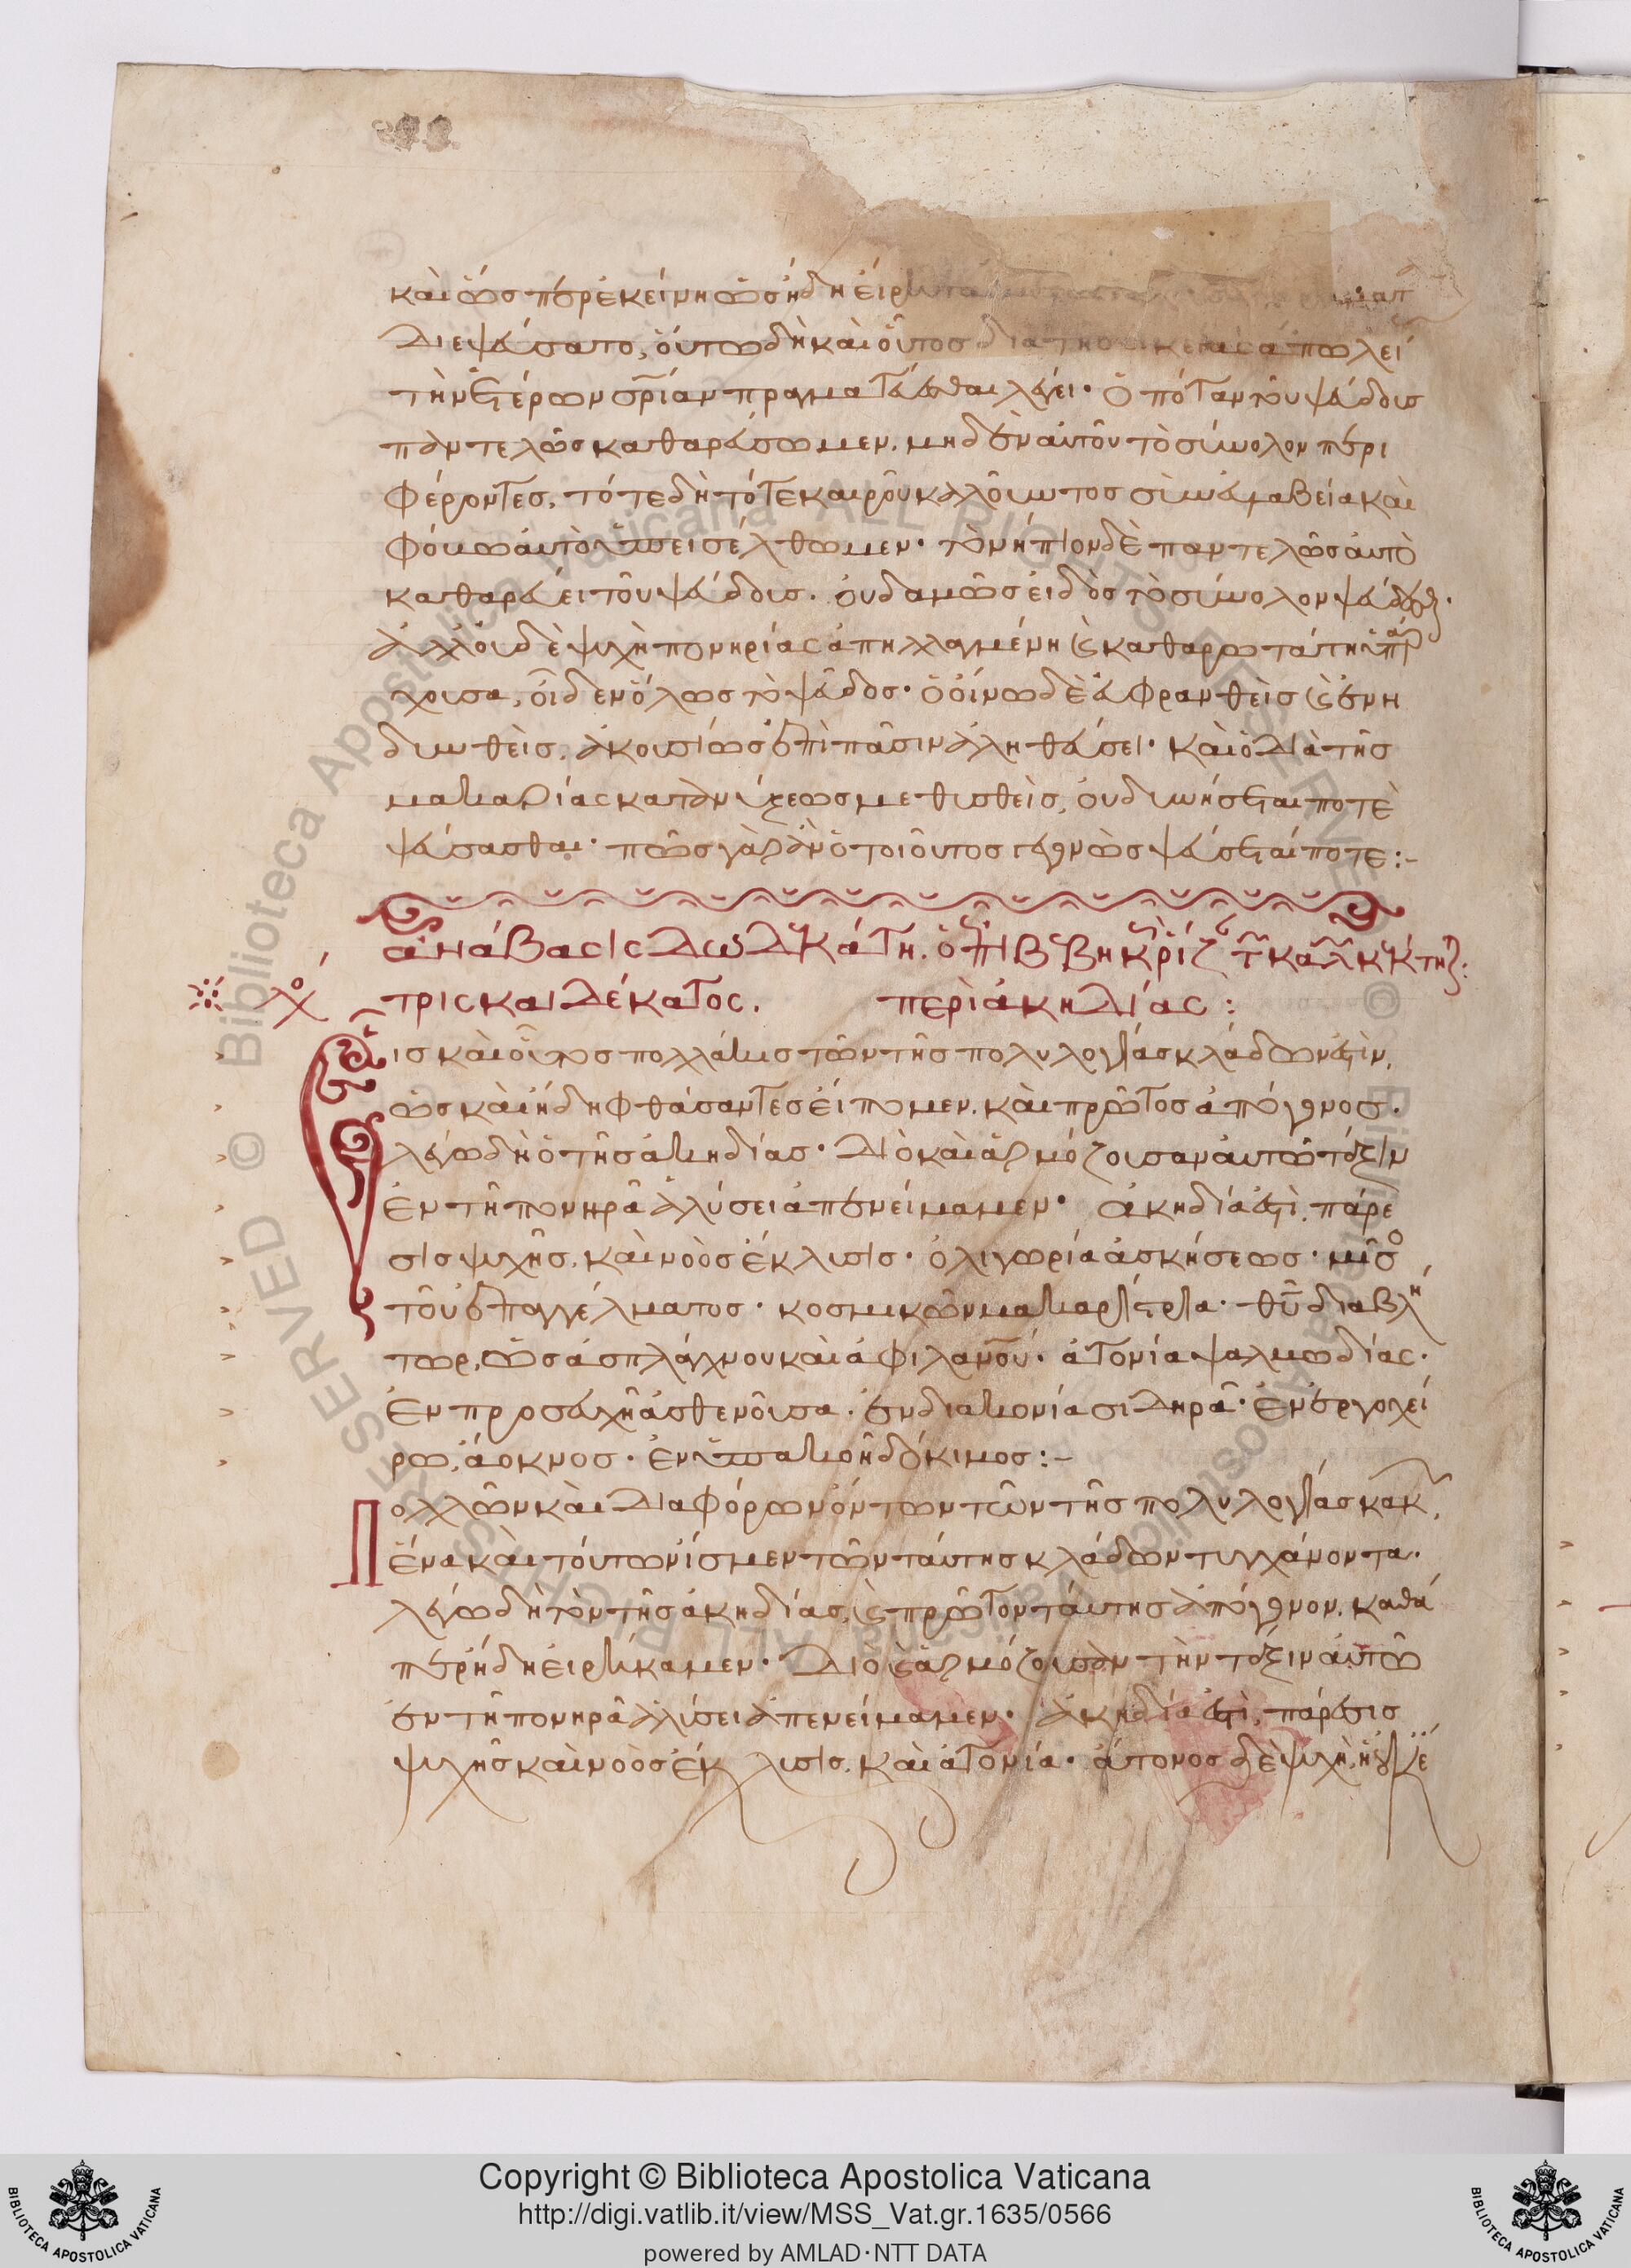 καὶ ὥσπερ ἐκείνη ὡς ἤδη εἰρ
διεψεύσατο, οὕτω δὴ καὶ οὗτος διὰ τῆς οἰκείας ἀπωλεί
τὴν ἑτέρων σρίαν πραγματεύεσθαι λέγει· ὁπόταν τοῦ ψεύδους
παντελῶς καθαρεύσωμεν, μηδὲν αὐτοῦ τὸ σύνολον περι
φέροντες, τότε δὴ τότε καιροῦ καλοῦντος σὺν εὐλαβεία καὶ
φόβω αὐτὸ ὑπεισέλθωμεν· τὸ νήπιον δὲ παντελῶς αὐτὸ
καθαρεύει τοῦ ψεύδους. οὐδαμῶς εἰδὸς τὸ σύνολον ψεύδεσθαι·
ἀλλ' οὐδὲ ψυχὴ πονηρίας ἀπηλλαγμένη καὶ καθαρωτάτη ὑπάρ
χουσα, οἶδεν ὅλως τὸ ψεῦδος· ὁ οἴνω δὲ εὐφρανθεὶς καὶ ἐνη
δυνθεὶς, ἀκουσίως ἐπὶ πᾶσιν ἀληθεύσει· καὶ ὁ διὰ τῆς
μακαρίας κατανύξεως μεθυσθεὶς, οὐ δυνήσεται ποτὲ
ψεύσασθαι· πῶς γὰρ ἂν ὁ τοιοῦτος γεγονὼς ψεύσεταί ποτε:-
ἀνάβασις δωδεκάτη.
τρισκαιδέκατος. περὶ ἀκηδίας:
Εἷς καὶ οὗτος πολλάκις τῶν τῆς πολυλογίας κλάδων ἐστὶν,
ὡς καὶ ἤδη φθάσαντες εἴπομεν, καὶ πρῶτος ἀπόγονος.
λέγω δὴ ὁ τῆς ἀκηδίας· διὸ καὶ ἁρμόζουσαν αὐτῶ τάξιν
ἐν τῆ πονηρᾶ ἁλύσει ἀπενείμαμεν· ἀκηδία ἐστὶ, πάρε
σις ψυχῆς, καὶ νοὸς ἔκλυσις· ὀλιγωρία ἀσκήσεως· μῖσο
τοῦ ἐπαγγέλματος· κοσμικῶν μακαρίστρια· θῦ διαβλή
τωρ, ὡς ἀσπλάγχνου καὶ ἀφιλανου· ἀτονία ψαλμωδίας·
ἐν προσευχῆ ἀσθενοῦσα· ἐν διακονία σιδηρᾶ· ἐν ἐργοχεί
ρω, ἄοκνος· ἐν ὑπακοῆ δόκιμος:-
Πολλῶν καὶ διαφόρων ὄντων τῶν τῆς πολυλογίας κακ,
ἕνα καὶ τούτων ἴσμεν τῶν ταύτης κλάδων τυγχάνοντα.
λέγω δὴ τὸν τῆς ἀκηδίας, καὶ πρῶτον ταύτης ἀπόγονον, καθά
περ ἤδη εἰρήκαμεν· διὸ καὶ ἁρμόζουσαν τὴν τάξιν αὐτῶ
ἐν τῆ πονηρᾶ ἁλύσει ἀπενείμαμεν· ἀκηδία ἐστὶ, πάρεσις
ψυχῆς καὶ νοὸς ἔκλυσις, καὶ ἀτονία· ἄτονος δὲ ψυχὴ, ἡ οὐκέ
Copyright © Biblioteca Apostolica Vaticana
http://digi.vatlib.it/view/MSS_Vat.gr.1635/0566
powered by AMLAD·NTT DATA
BIBLIOTECA APOSTOLICA VATICANA
BIBLIOTECA APOSTOLICA VATICANA